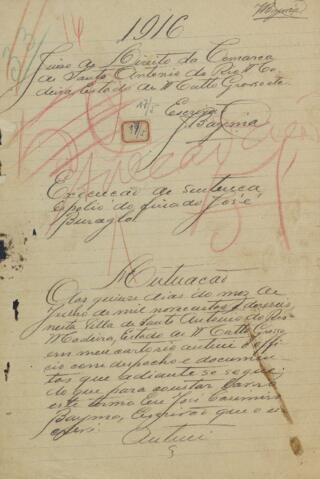 1916
Juizo de Direito da Comarca
de Santo Antonio do Rio Ma-
deira, Estado de Matto Grosso
Escrivão
Bayma
Execução de sentença
Espolio do finado José
Autuação
Aos quinze dias do mez de
Julho de mil novecentos e dezeseis
nesta Villa de Santo Antonio do Rio
Madeira, Estado de Matto Grosso
em meu cartorio autuei o offi-
cio com despacho e documen-
tos que adiante se segui
do que para constar lavro
este termo. Eu José Casimiro
Bayma, Escrivão que o es-
Autuei